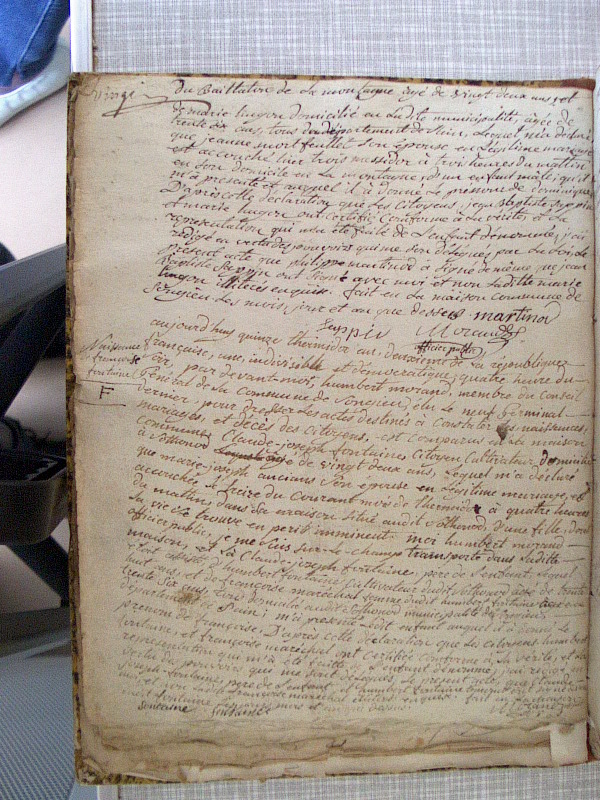 du Baillatire de la montagne, agé de vingt deux ans, et
de marie lugon domicilié en la dite municipalité, agée de
trente six ans, tous du département de l'ain, lequel m'a déclaré
que jeanne mortfeuillet son épouse en légitime mariage
est accouchée hier trois messidor à trois heures du matin
en son domicile en la montagne, d'un enfant mâle, qu'il
m'a présenté et auquel il à donné le prénom de dominique,
D'après cette déclaration que les Citoyens, jean Baptiste Suppin
et marie lugon ont certifié Conforme à la vérité et la
représentation qui m'a été faite de l'enfant dénommé, j'ai
rédigé en vertu des pouvoirs qui me sont délégués par la loi, le
présent acte que philippe martinod à signé de même que jean
Baptiste Suppin ont signé avec moi et non la ditte marie
lugon illiterée enquise. fait en la maison Commune de
Songieu les mois, jour et an que dessus martinod
Suppin Morand
officier public
Naissance
de françoise
fontaine
F
aujourd'huy quinze thermidor an deuxième de la république
française, une, indivisible et démocratique, quatre heure du
soir par devant moi, humbert morand, membre du Conseil
Général de la Commune de Songieu, élu le neuf Germinal
dernier, pour dresser les actes destinés à Constater les naissances,
mariages, et décès des Citoyens, est comparus en la maison
Commune Claude-joseph fontaine Citoyen Cultivateur domicilié
à Sothonod agé de vingt deux ans, Lequel m'a déclaré
que marie-joseph ancians son épouse en légitime mariage, est
accouchée le treize du Courant mois de thermidor à quatre heures
du matin dans sa maison située audit Sothonod d'une fille, dont
la vie se trouve en péril imminent. moi humbert morand
officier public, je me suis sur-le-champ transporté dans la ditte
maison, et là Claude-joseph fontaine, père de l'enfant, lequel
étoit assisté d'humbert fontaine Cultivateur audit Sothonod agé de trente
huit ans, et de françoise maréchal femme dudit humbert fontaine agée de
trente Six ans, tous domicilié audit Sothonod municipalité de Songieu
département de l'ain; m'a présenté ledit enfant auquel il à donné le
prénom de françoise, D'après cette déclaration que les Citoyens humbert
fontaine, et françoise maréchal ont certifié Conforme à la vérité, et la
représentation qui m'a été faitte de l'enfant dénommé, j'ai rédigé en
vertu des pouvoirs que me sont délégués, le présent acte, que Claude
joseph fontaine père de l'enfant et humbert fontaine temoin ont signé avec
moi, et non la ditte françoise maréchal illiterée enquise. fait en la maison
dudit fontaine les jours mois et an que dessus
fontaine fontaine Morand